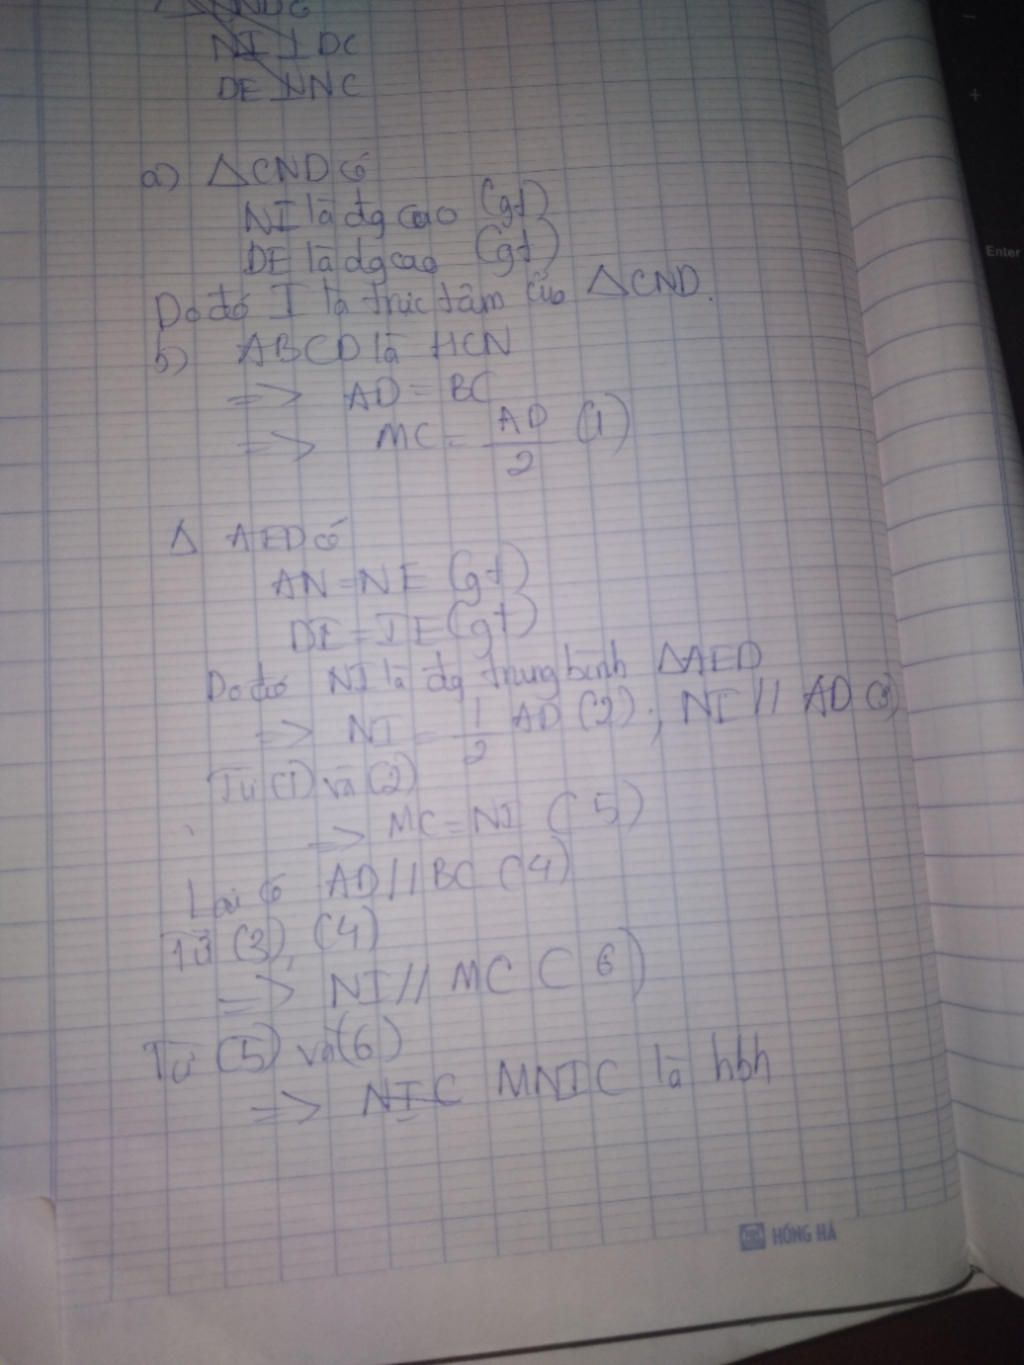 NI ⊥ DC
DE ⊥ NC
a) △CND có
NI là đg cao (gt)
DE là đg cao (gt)
Do đó I là trực tâm của △CND.
b) ABCD là HCN
=> AD = BC
=> MC = AD/2 (1)
△ AED có
AN = NE (gt)
DE = IE (gt)
Do đó NI là đg trung bình △AED
=> NI = 1/2 AD (2); NI // AD (3)
Từ (1) và (2)
=> MC = NI (5)
Lại có AD // BC (4)
Từ (3), (4)
=> NI // MC (6)
Từ (5) và (6)
=> NIC MNIC là hbh
HỒNG HÀ
Enter